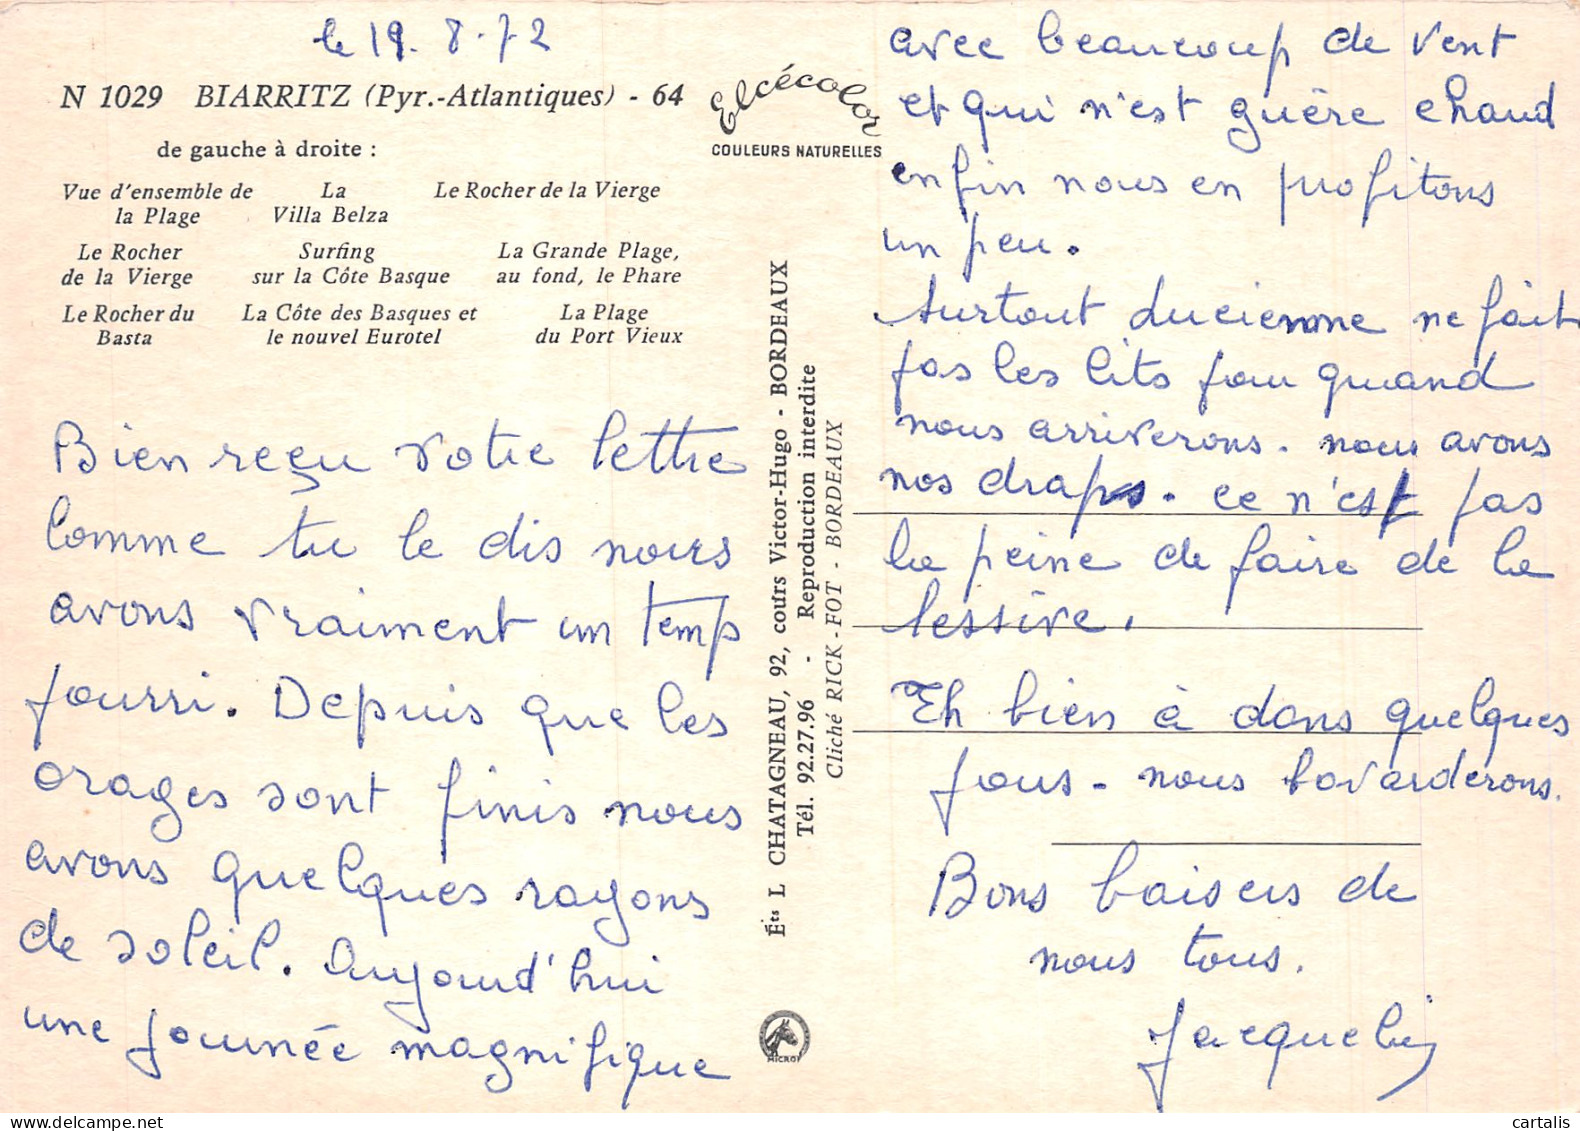 le 19.8.72
N 1029 BIARRITZ (Pyr.-Atlantiques) - 64
de gauche à droite :
Vue d'ensemble de la Plage
La Villa Belza
Le Rocher de la Vierge
Le Rocher de la Vierge
Surfing sur la Côte Basque
La Grande Plage, au fond, le Phare
Le Rocher du Basta
La Côte des Basques et le nouvel Eurotel
La Plage du Port Vieux
Elcécolor
COULEURS NATURELLES
Bien reçu votre lettre
comme tu le dis nous
avons vraiment un temp
pourri. Depuis que les
orages sont finis nous
avons quelques rayons
de soleil. Aujourd'hui
une journée magnifique
Éts L CHATAGNEAU, 92, cours Victor-Hugo - BORDEAUX
Tél. 92.27.96 - Reproduction interdite
Cliché RICK-FOT - BORDEAUX
MICRO
avec beaucoup de vent
et qui n'est guère chaud
enfin nous en profitons
un peu.
Surtout Lucienne ne fait
pas les lits pou quand
nous arriverons. nous avons
nos draps. ce n'est pas
la peine de faire de la
lessive.
Eh bien à dans quelques
jous - nous bavarderons.
Bons baisers de
nous tous.
Jacqueline
cartalis.com